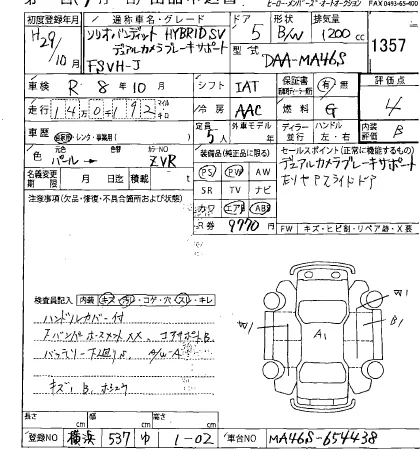 ヒーローメンバーズ・オートオークション FAX0493-65-400
初度登録年月 通称車名・グレード ドア 形状 排気量
H29/10月
ソリオバンディット HYBRID SV デュアルカメラブレーキサポート
FSVH-J
5 B/W 1200 cc
型式 DAA-MA46S
1357
車検 R 8年 10月
シフト IAT
保証書 有・無
評価点 4
走行
冷房 AAC
燃料 G
車歴 自家用・レンタ・事業用( )
定員 5人
外車モデル 年
ディーラー 並行
ハンドル 左・右
内装評価 B
色 元色 パール → 色替 カラーNO ZVR
装備品(純正品に限る)
PS PW AW
SR TV ナビ
カワ エアB ABS
セールスポイント(正常に機能するもの)
デュアルカメラブレーキサポート
左リヤPスライドドア
名義変更期限 月 日迄 積載 t
注意事項(欠品・修復・不具合箇所および状態)
R券 9770円
FW キズ・ヒビ割・リペア跡・X
検査員記入 内装 キズ・汚レ・コゲ・穴・スレ・キレ
ハンドルカバー付
バッテリー
キズ
A1
W1
W1
B1
長さ cm 幅 cm 高さ cm
登録NO 横浜 537 ゆ 1-02
車台NO MA46S-654438